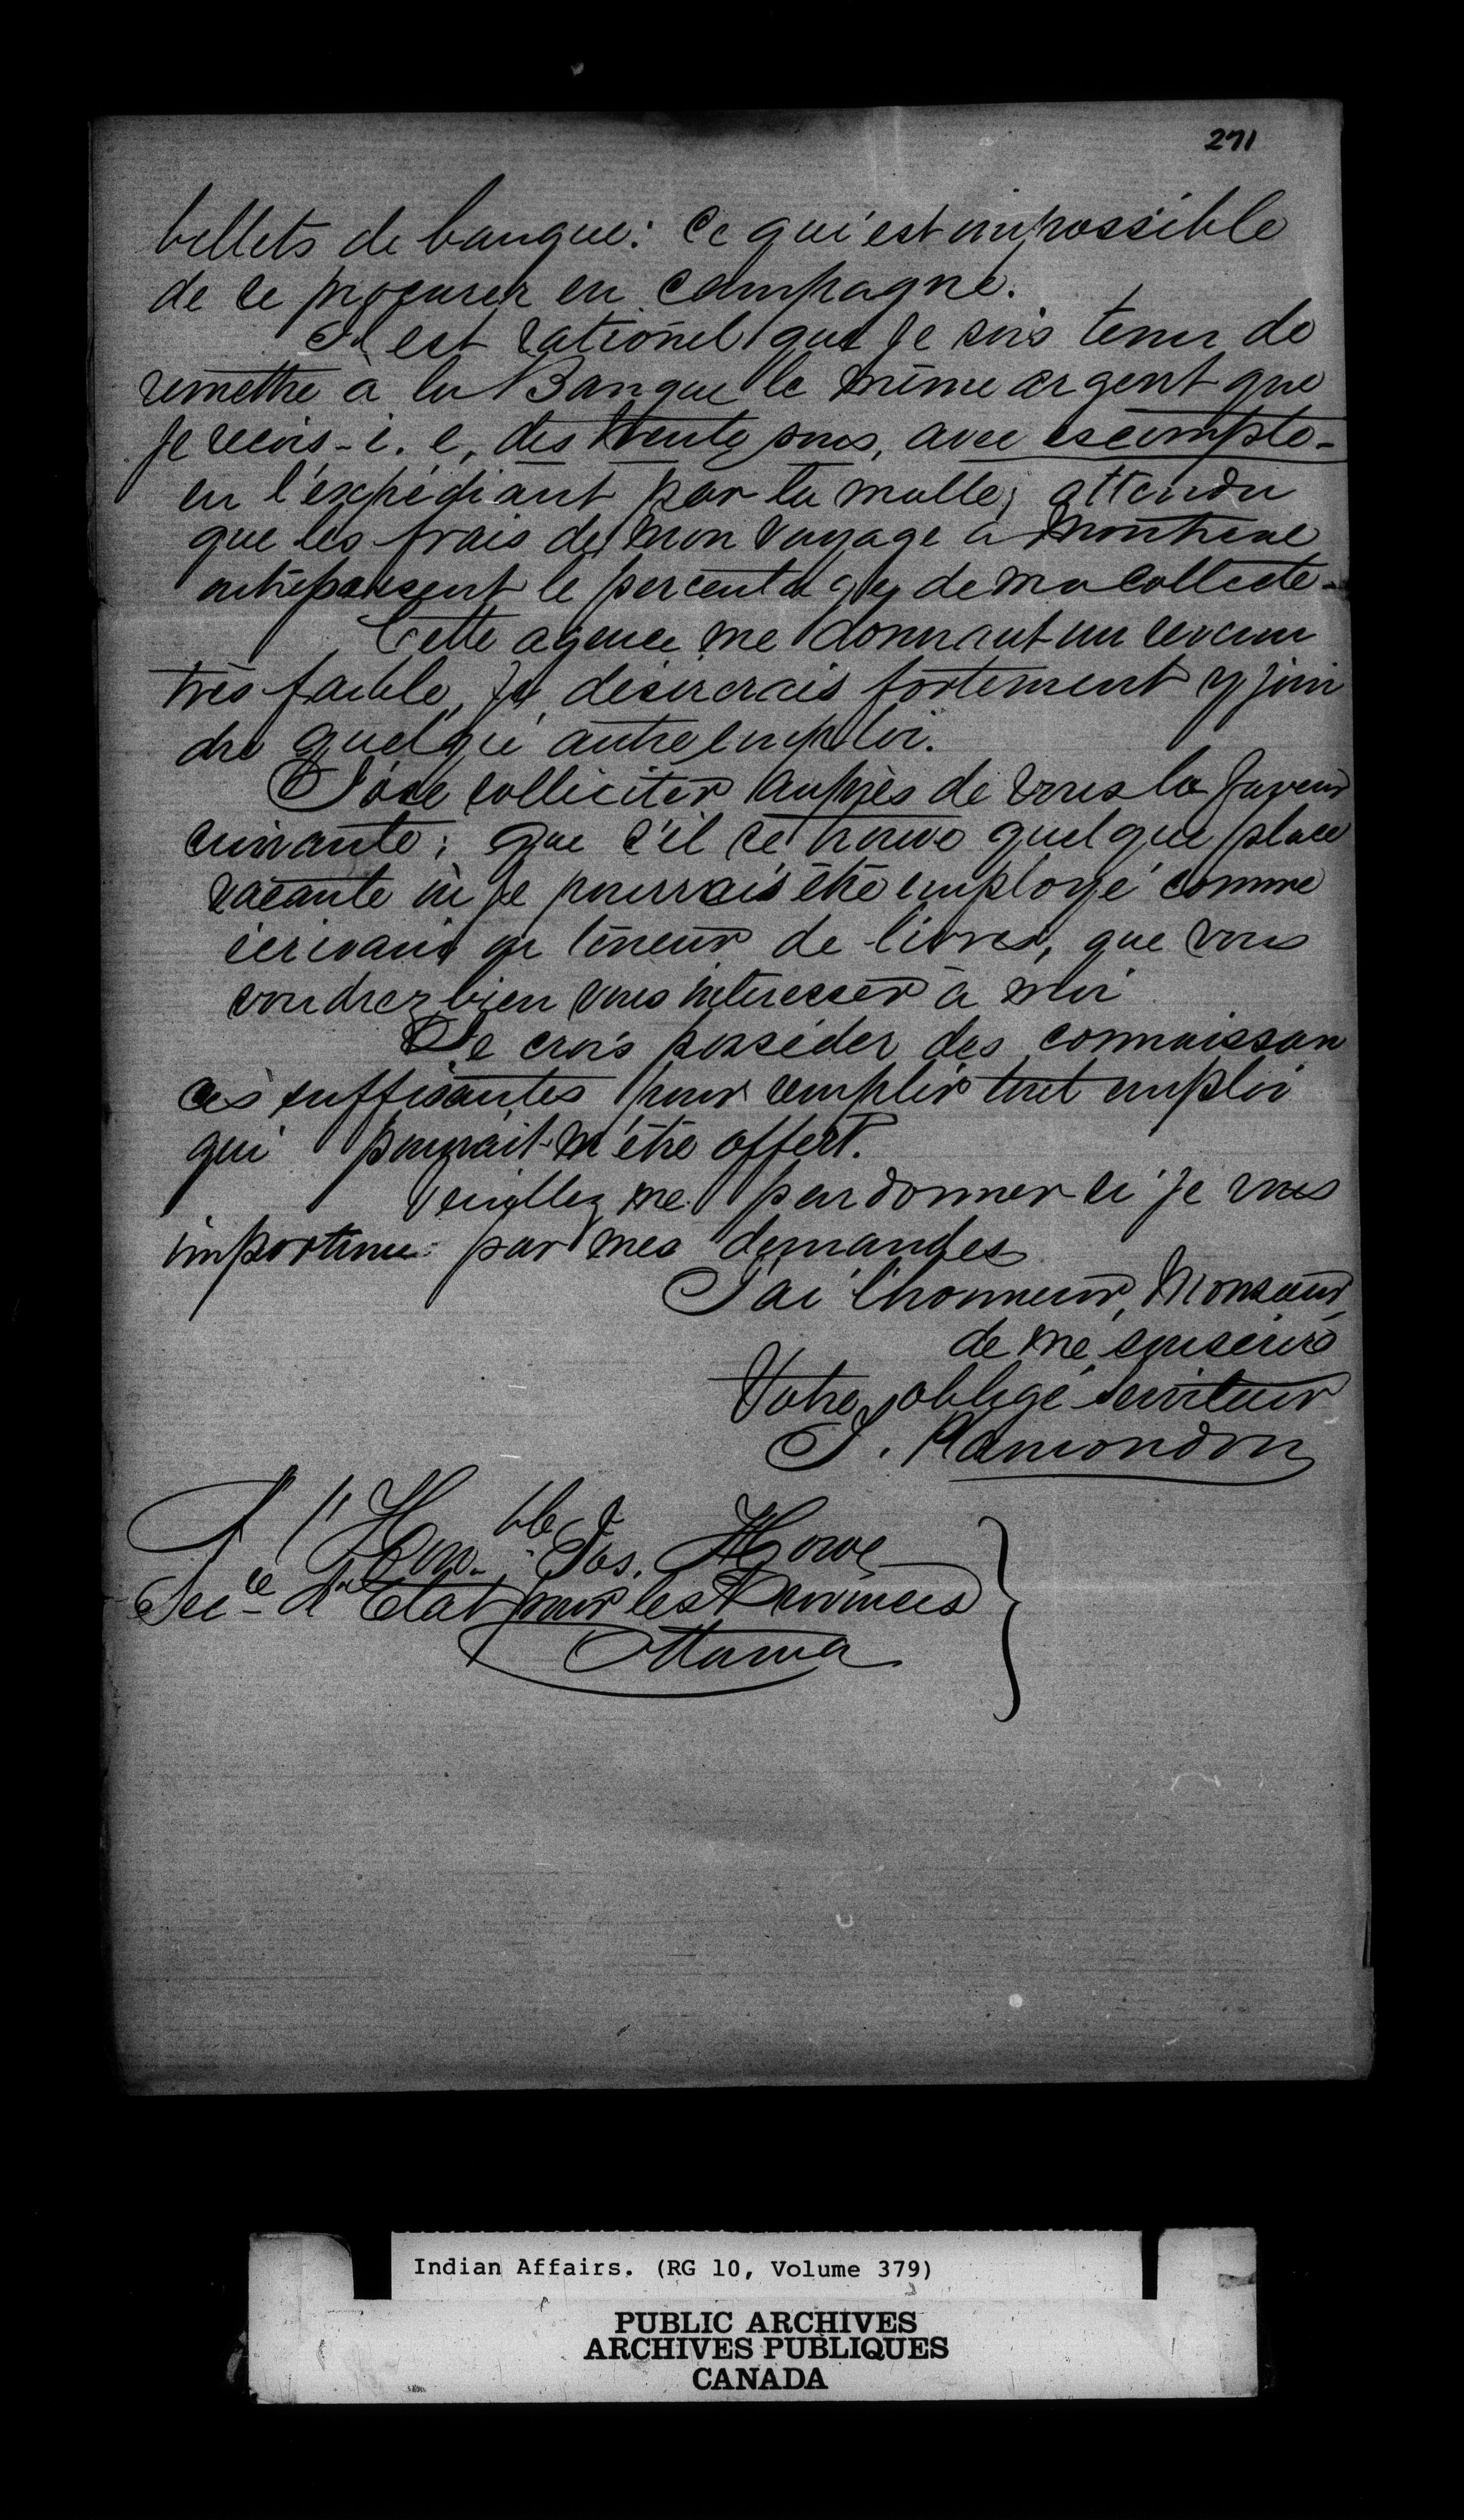 271
billets de banque: ce qui est impossible
de se procurer en campagne.
Il est rationel que je sois tenu de
remettre à la Banque le même argent que
je reçois - i. e, des trente sous, avec escompte -
en l'expédiant par la malle; attendu
que les frais de mon voyage à Montreal
outrepassent le percentage de ma collecte -
Cette agence me donnant un revenu
très faible, je désirerais fortement y join
dre quelqu'autre emploi.
J'ose solliciter auprès de vous la faveur
suivante; que s'il se trouve quelque place
vacante où je pourrais être employé comme
écrivain ou teneur de livres, que vous
voudrez bien vous intéresser à moi
Je crois posséder des connaissan
ces suffisantes pour remplir tout emploi
qui pourrait m'être offert.
Veuillez me pardonner si je vous
importune par mes demandes
J'ai l'honneur, Monsieur,
de me souscrire
Votre obligé serviteur
J. Plamondon
A l'Hon.ble Jos. Howe
Sec.re d'Etat pour les Provinces
Ottawa
Indian Affairs. (RG 10, Volume 379)
PUBLIC ARCHIVES
ARCHIVES PUBLIQUES
CANADA